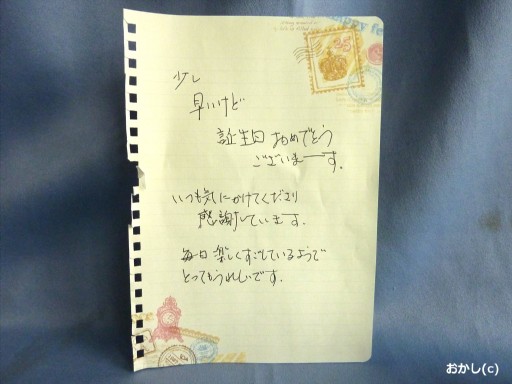 少し
早いけど
誕生日 おめでとう
ございまーす。
いつも気にかけてくださり
感謝しています。
毎日楽しくすごしているようで
とってもうれしいです。
おかし(c)